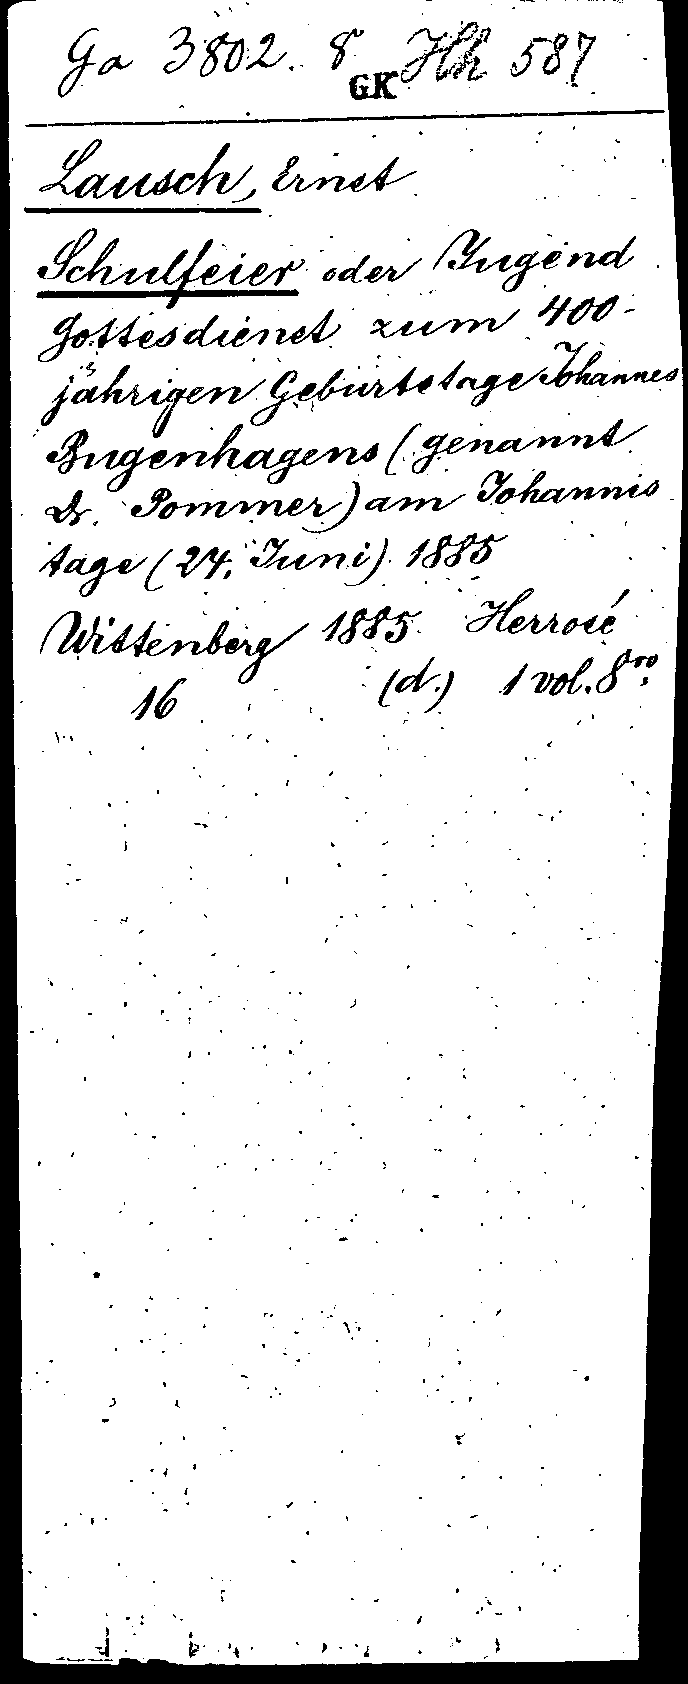 Ga 3802. 8 Hh 587
GK
Lausch, Ernst
Schulfeier oder Jugend
gottesdienst zum 400-
jährigen Geburtstage Johannes
Bugenhagens (genannt
Dr. Pommer) am Johannis
tage (24. Juni) 1885
Wittenberg 1885. Herrosé
16 (d.) 1 vol. 8vo.